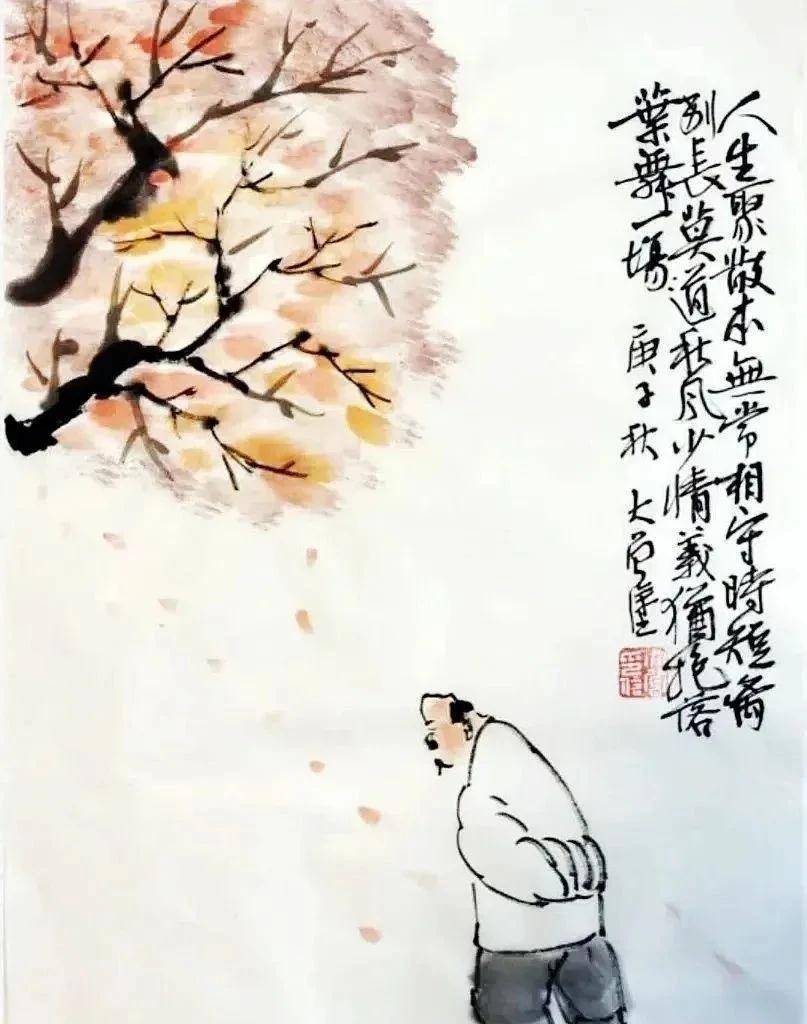 人生聚散本無常相守時短离
别長莫道秋风少情義猶抱落
葉舞一場 庚子秋 大